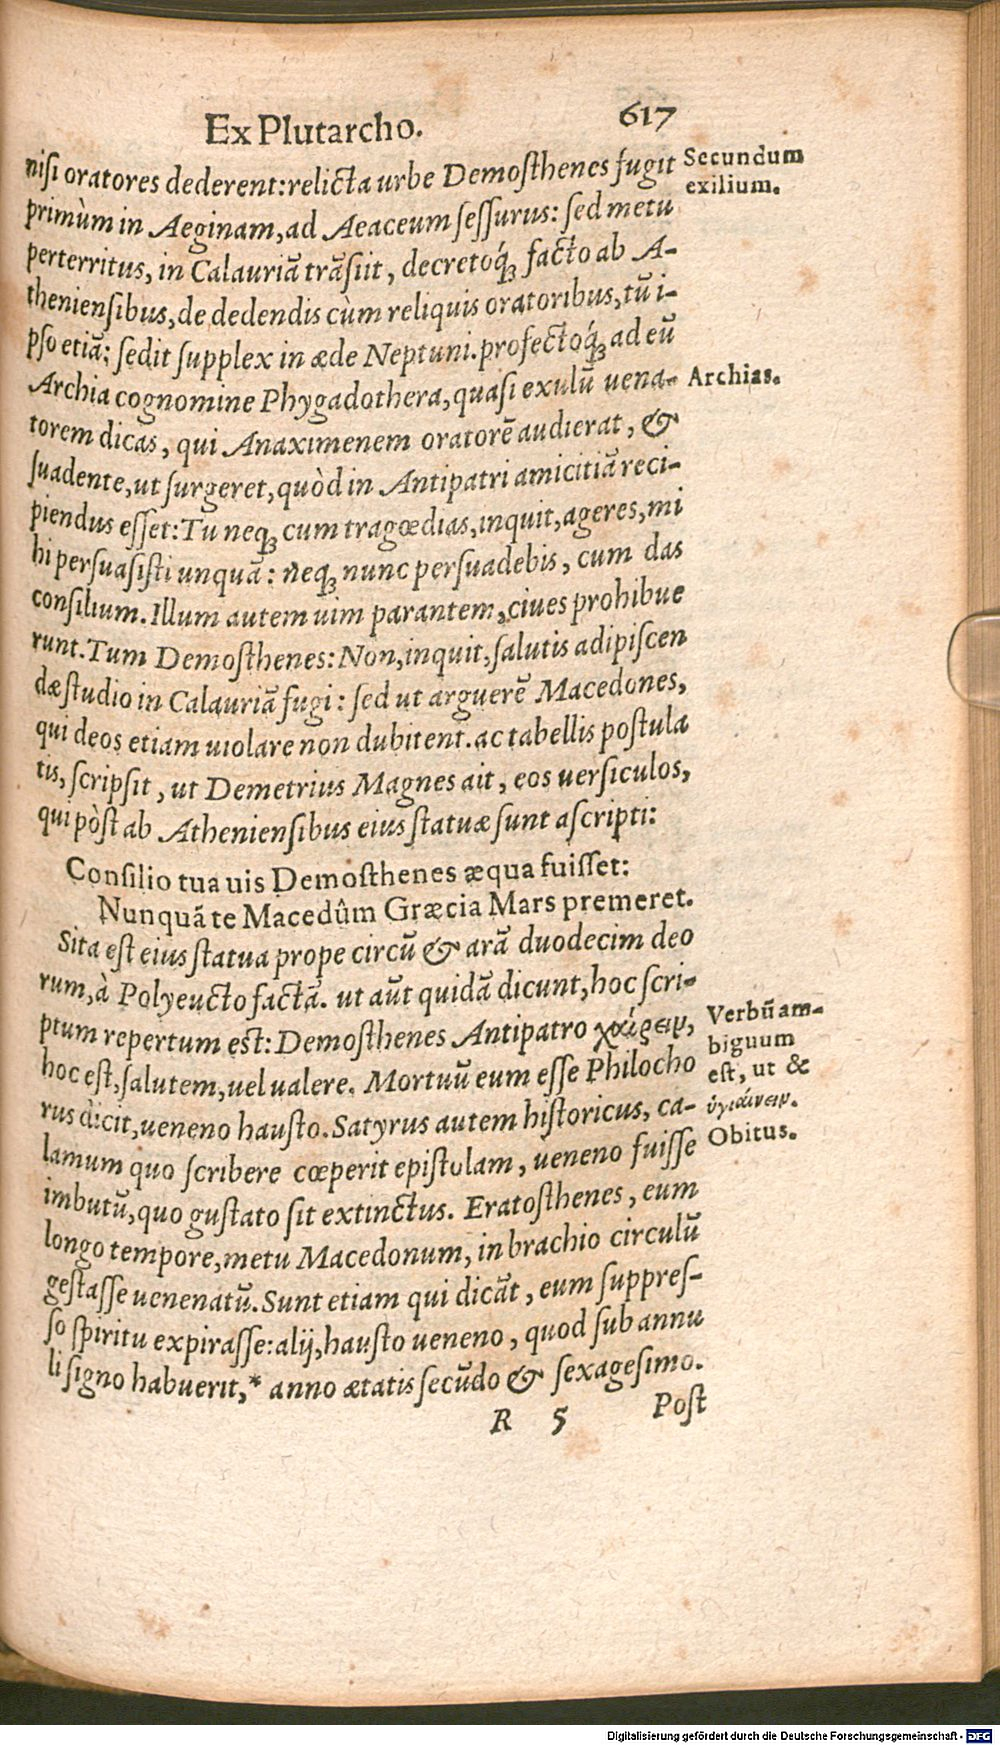 Ex Plutarcho. 617
niſi oratores dederent: relicta urbe Demoſthenes fugit
Secundum
exilium.
primùm in Aeginam, ad Aeaceum ſeſſurus: ſed metu
perterritus, in Calauriā trāſiit, decretoq́; facto ab A-
thenienſibus, de dedendis cùm reliquis oratoribus, tū i-
pſo etiā: ſedit ſupplex in æde Neptuni. profectoq́; ad eū
Archia cognomine Phygadothera, quaſi exulū uena-
Archias.
torem dicas, qui Anaximenem oratorē audierat, &
ſuadente, ut ſurgeret, quòd in Antipatri amicitiā reci-
piendus eſſet: Tu neq; cum tragœdias, inquit, ageres, mi
hi perſuaſiſti unquā: neq; nunc perſuadebis, cum das
conſilium. Illum autem uim parantem, ciues prohibue
runt. Tum Demoſthenes: Non, inquit, ſalutis adipiſcen
dæ ſtudio in Calauriā fugi: ſed ut arguerē Macedones,
qui deos etiam uiolare non dubitent. ac tabellis poſtula
tis, ſcripſit, ut Demetrius Magnes ait, eos uerſiculos,
qui pòſt ab Athenienſibus eius ſtatuæ ſunt aſcripti:
Conſilio tua uis Demoſthenes æqua fuiſſet:
Nunquā te Macedûm Græcia Mars premeret.
Sita eſt eius ſtatua prope circū & arā duodecim deo
rum, à Polyeucto factā. ut aūt quidā dicunt, hoc ſcri-
ptum repertum eſt: Demoſthenes Antipatro χαίρειν,
Verbū am-
biguum
eſt, ut &
ὑγιαίνειν.
hoc eſt, ſalutem, uel ualere. Mortuū eum eſſe Philocho
rus dicit, ueneno hauſto. Satyrus autem hiſtoricus, ca-
Obitus.
lamum quo ſcribere cœperit epiſtolam, ueneno fuiſſe
imbutū, quo guſtato ſit extinctus. Eratoſthenes, eum
longo tempore, metu Macedonum, in brachio circulū
geſtaſſe uenenatū. Sunt etiam qui dicāt, eum ſuppreſ-
ſo ſpiritu expiraſſe: alij, hauſto ueneno, quod ſub annu
li ſigno habuerit,* anno ætatis ſecūdo & ſexageſimo.
R 5 Poſt
Digitalisierung gefördert durch die Deutsche Forschungsgemeinschaft - DFG